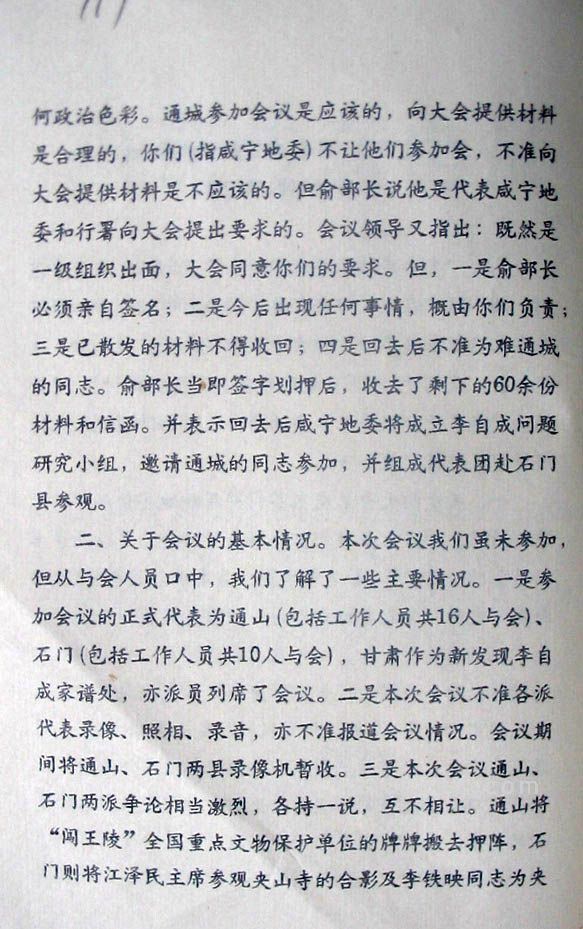 何政治色彩。通城参加会议是应该的，向大会提供材料
是合理的，你们(指咸宁地委)不让他们参加会，不准向
大会提供材料是不应该的。但俞部长说他是代表咸宁地
委和行署向大会提出要求的。会议领导又指出：既然是
一级组织出面，大会同意你们的要求。但，一是俞部长
必须亲自签名；二是今后出现任何事情，概由你们负责；
三是已散发的材料不得收回；四是回去后不准为难通城
的同志。俞部长当即签字划押后，收去了剩下的60余份
材料和信函。并表示回去后咸宁地委将成立李自成问题
研究小组，邀请通城的同志参加，并组成代表团赴石门
县参观。
二、关于会议的基本情况。本次会议我们虽未参加，
但从与会人员口中，我们了解了一些主要情况。一是参
加会议的正式代表为通山(包括工作人员共16人与会)、
石门(包括工作人员共10人与会)，甘肃作为新发现李自
成家谱处，亦派员列席了会议。二是本次会议不准各派
代表录像、照相、录音，亦不准报道会议情况。会议期
间将通山、石门两县录像机暂收。三是本次会议通山、
石门两派争论相当激烈，各持一说，互不相让。通山将
“闯王陵”全国重点文物保护单位的牌牌搬去押阵，石
门则将江泽民主席参观夹山寺的合影及李铁映同志为夹